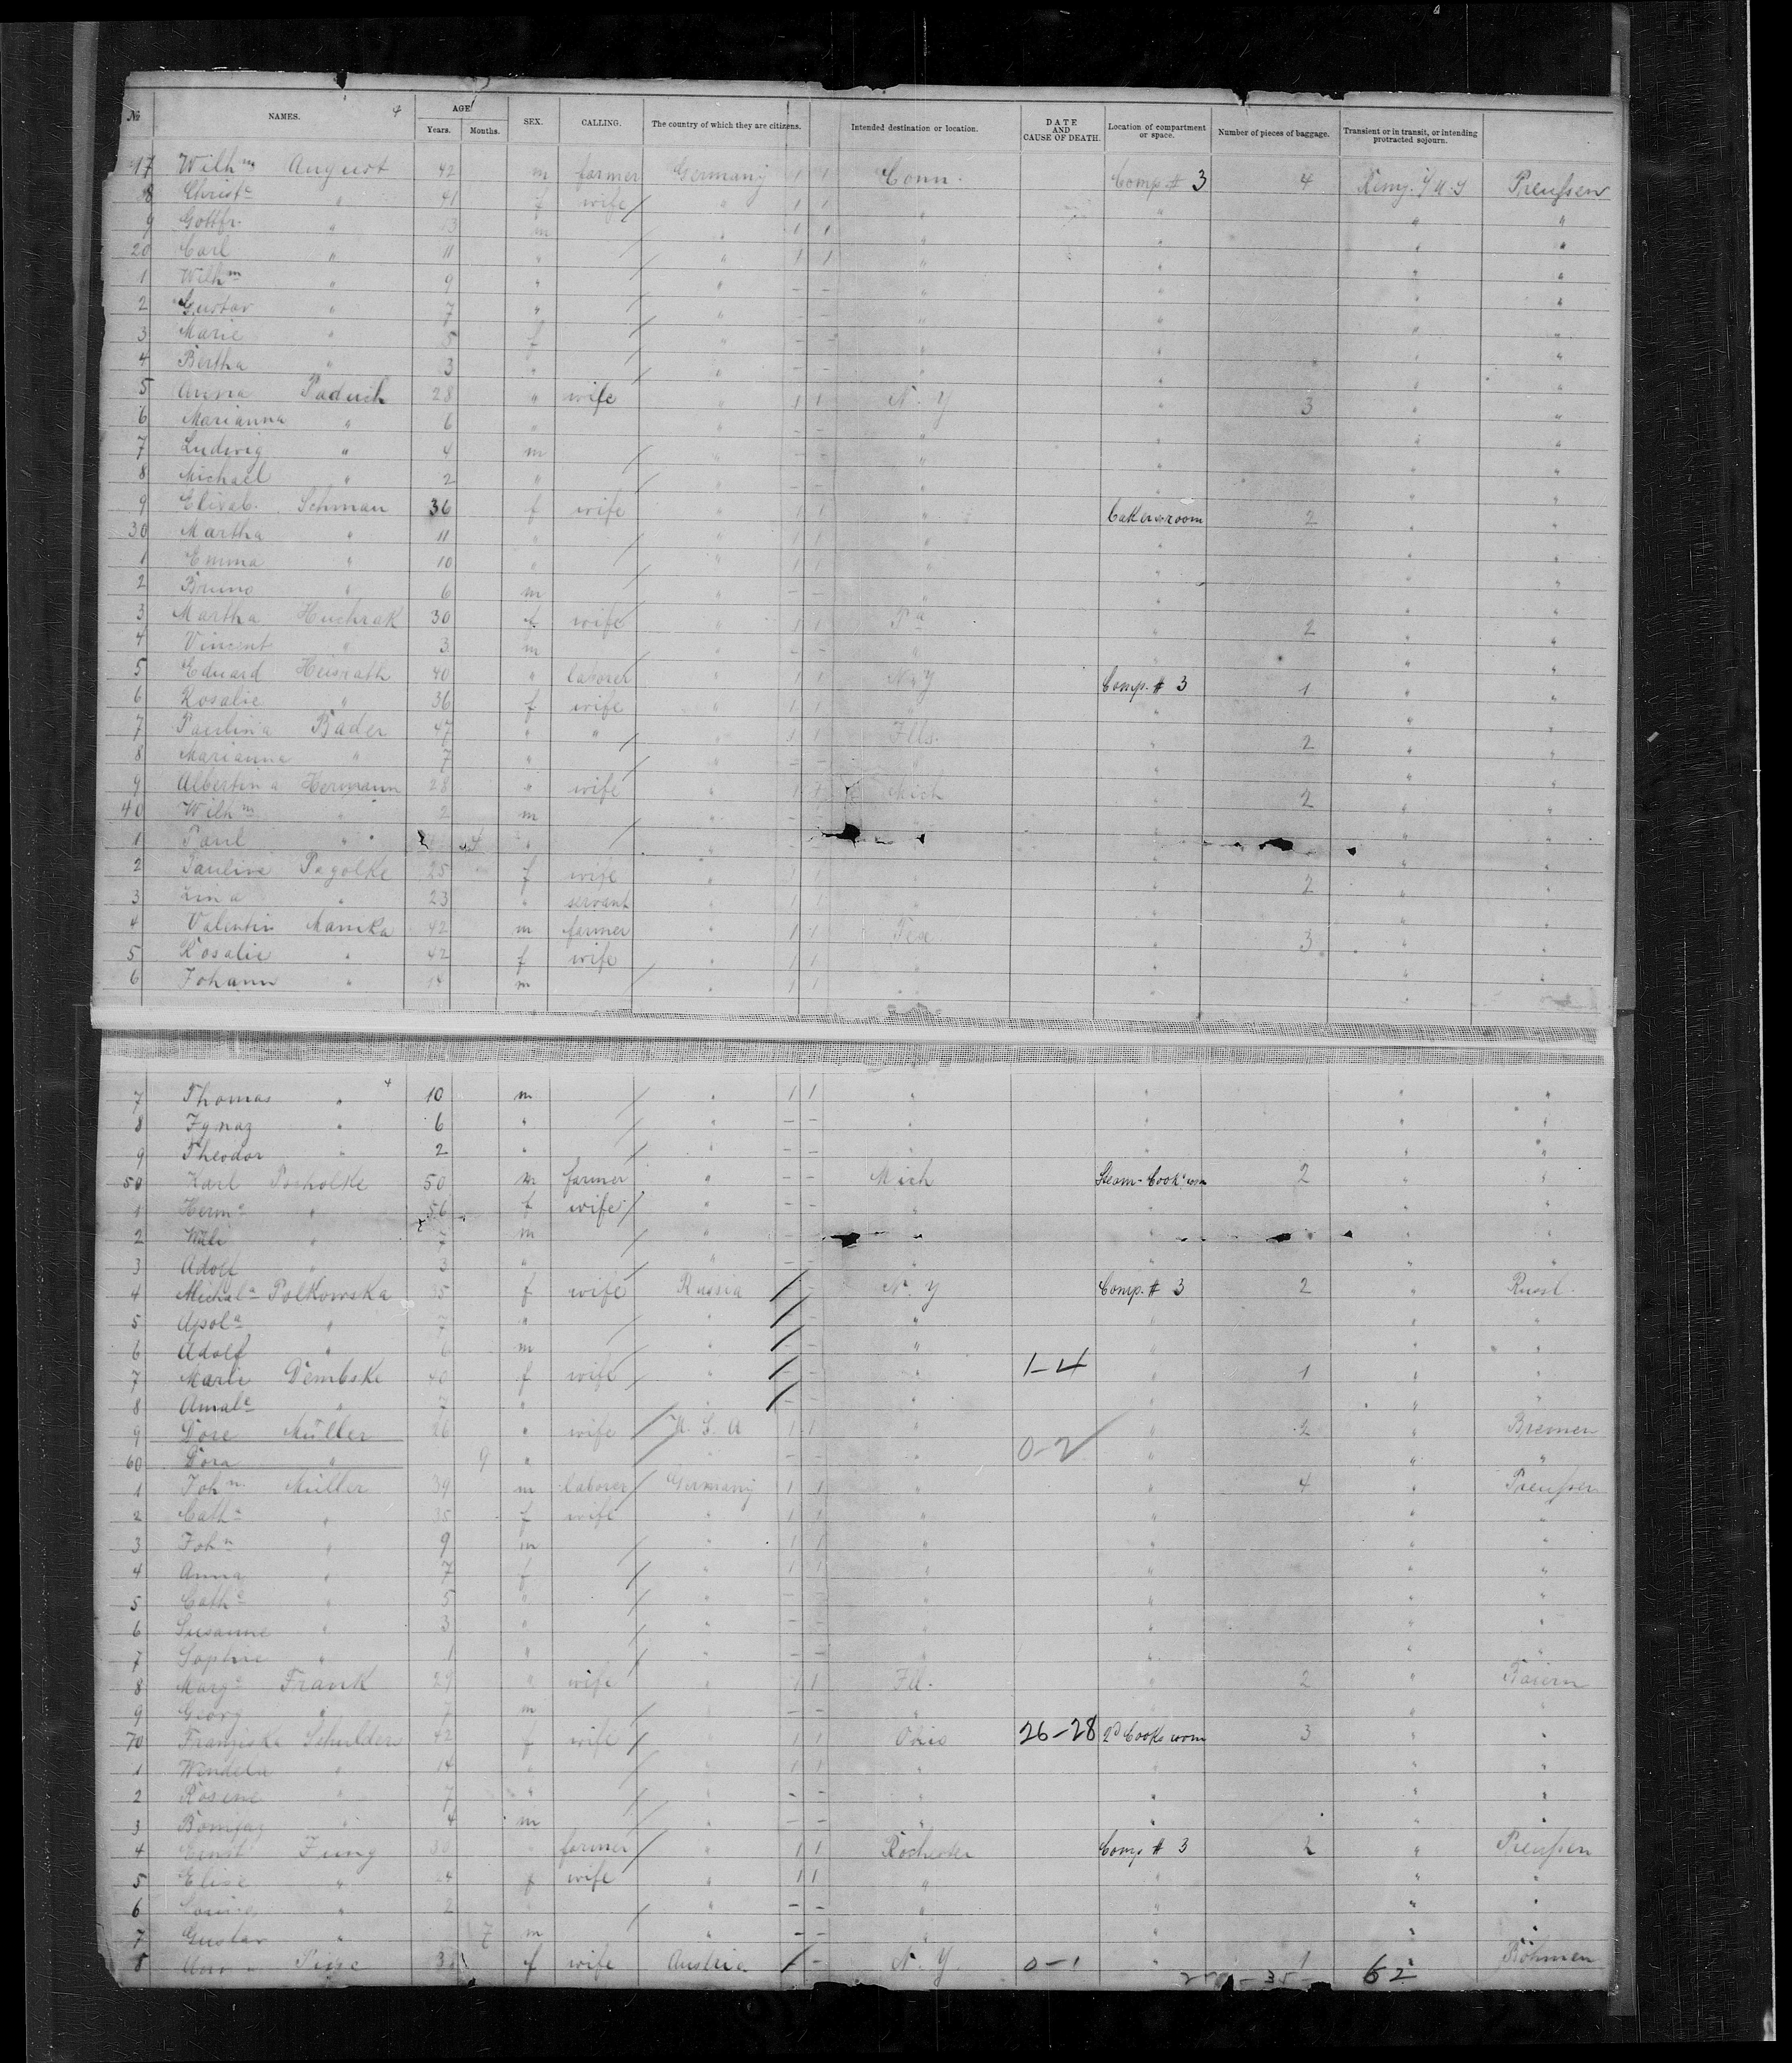 № NAMES. AGE Years. Months. SEX. CALLING. The country of which they are citizens. Intended destination or location. DATE AND CAUSE OF DEATH. Location of compartment or space. Number of pieces of baggage. Transient or in transit, or intending protracted sojourn.
17 Wilhm August 42 m farmer Germany 1 1 Conn. Comp. # 3 4 Preußen
8 Christe " 41 f wife " 1 1 " " " "
9 Gottfr. " 13 m " 1 1 " " " "
20 Carl " 11 " " 1 1 " " " "
1 Wilhm " 9 " " - - " " " "
2 Gustav " 7 " " - - " " " "
3 Marie " 5 f " - - " " " "
4 Bertha " 3 " " - - " " " "
5 Anna Paduch 28 " wife " 1 1 N. Y " 3 " "
6 Marianna " 6 " " - - " " " "
7 Ludwig " 4 m " - - " " " "
8 Michael " 2 " " - - " " " "
9 Elisab. Schman 36 f wife " 1 1 " Bakersroom 2 " "
30 Martha " 11 " " 1 1 " " " "
1 Emma " 10 " " 1 1 " " " "
2 Bruno " 6 m " - - " " " "
3 Martha Huchrak 30 f wife " 1 1 Pa " 2 " "
4 Vincent " 3 m " - - " " " "
5 Eduard Heisrath 40 " laborer " 1 1 N. Y Comp. # 3 1 " "
6 Rosalie " 36 f wife " 1 1 " " " "
7 Paulina Bader 47 " " " 1 1 Ills. " 2 " "
8 Marianna " 7 " " - - " " " "
9 Albertina Hermann 28 " wife " 1 1 Mich " 2 " "
40 Wilhm " 2 m " - " " " "
1 Paul " " " - " " "
2 Pauline Pagolke 25 f wife " 1 1 " " 2 " "
3 Lina " 23 " servant " 1 1 " " " "
4 Valentin Manka 42 m farmer " 1 1 Tex " 3 " "
5 Rosalie " 42 f wife " 1 1 " " " "
6 Johann " 14 m " 1 1 " " " "
7 Thomas " 10 m " 1 1 " " " "
8 Ignaz " 6 " " - - " " " "
9 Theodor " 2 " " - - " " " "
50 Karl Pocholke 50 m farmer " - - Mich Steam-Cook 2 " "
1 Herme " 56 f wife " - - " " " "
2 " 7 m " - " " " "
3 Adolf " 3 " " - - " " " "
4 Michale Polkowska 35 f wife Russia / - N. Y Comp. # 3 2 " Russl.
5 Apola " 7 " " / - " " " "
6 Adolf " 6 m " / - " " " "
7 Marie Dembske 40 f wife " / - " 1-4 " 1 " "
8 Amale " 7 " " / - " " " "
9 Dore Müller 26 " wife U. S. A 1 1 " " 2 " Bremen
60 Dora " 9 " " - - " 0-2 " " "
1 John. Müller 39 m laborer Germany 1 1 " " 4 " Preußen
2 Cathe " 35 f wife " 1 1 " " " "
3 John " 9 m " 1 1 " " " "
4 Anna " 7 f " 1 1 " " " "
5 Cathe " 5 " " - - " " " "
6 Susanne " 3 " " - - " " " "
7 Sophie " 1 " " - - " " " "
8 Marge Frank 29 " wife " 1 1 Ill. " 2 " Baiern
9 Georg " 7 m " - - " " " "
70 Franziska Schulders 42 f wife " 1 1 Ohio 26-28 2d Cooks room 3 " "
1 Wendela " 14 " " 1 1 " " " "
2 Rosine " 7 " " - - " " " "
3 Bonifaz " 4 m " - - " " " "
4 Ernst Jung 30 " farmer " 1 1 Rochester Comp # 3 2 " Preußen
5 Elise " 24 f wife " 1 1 " " " "
6 Louise " 2 " " - - " " " "
7 Gustav " 7 m " - - " " " "
8 f wife Austria / - N. Y 0-1 " 1 Böhmen
62